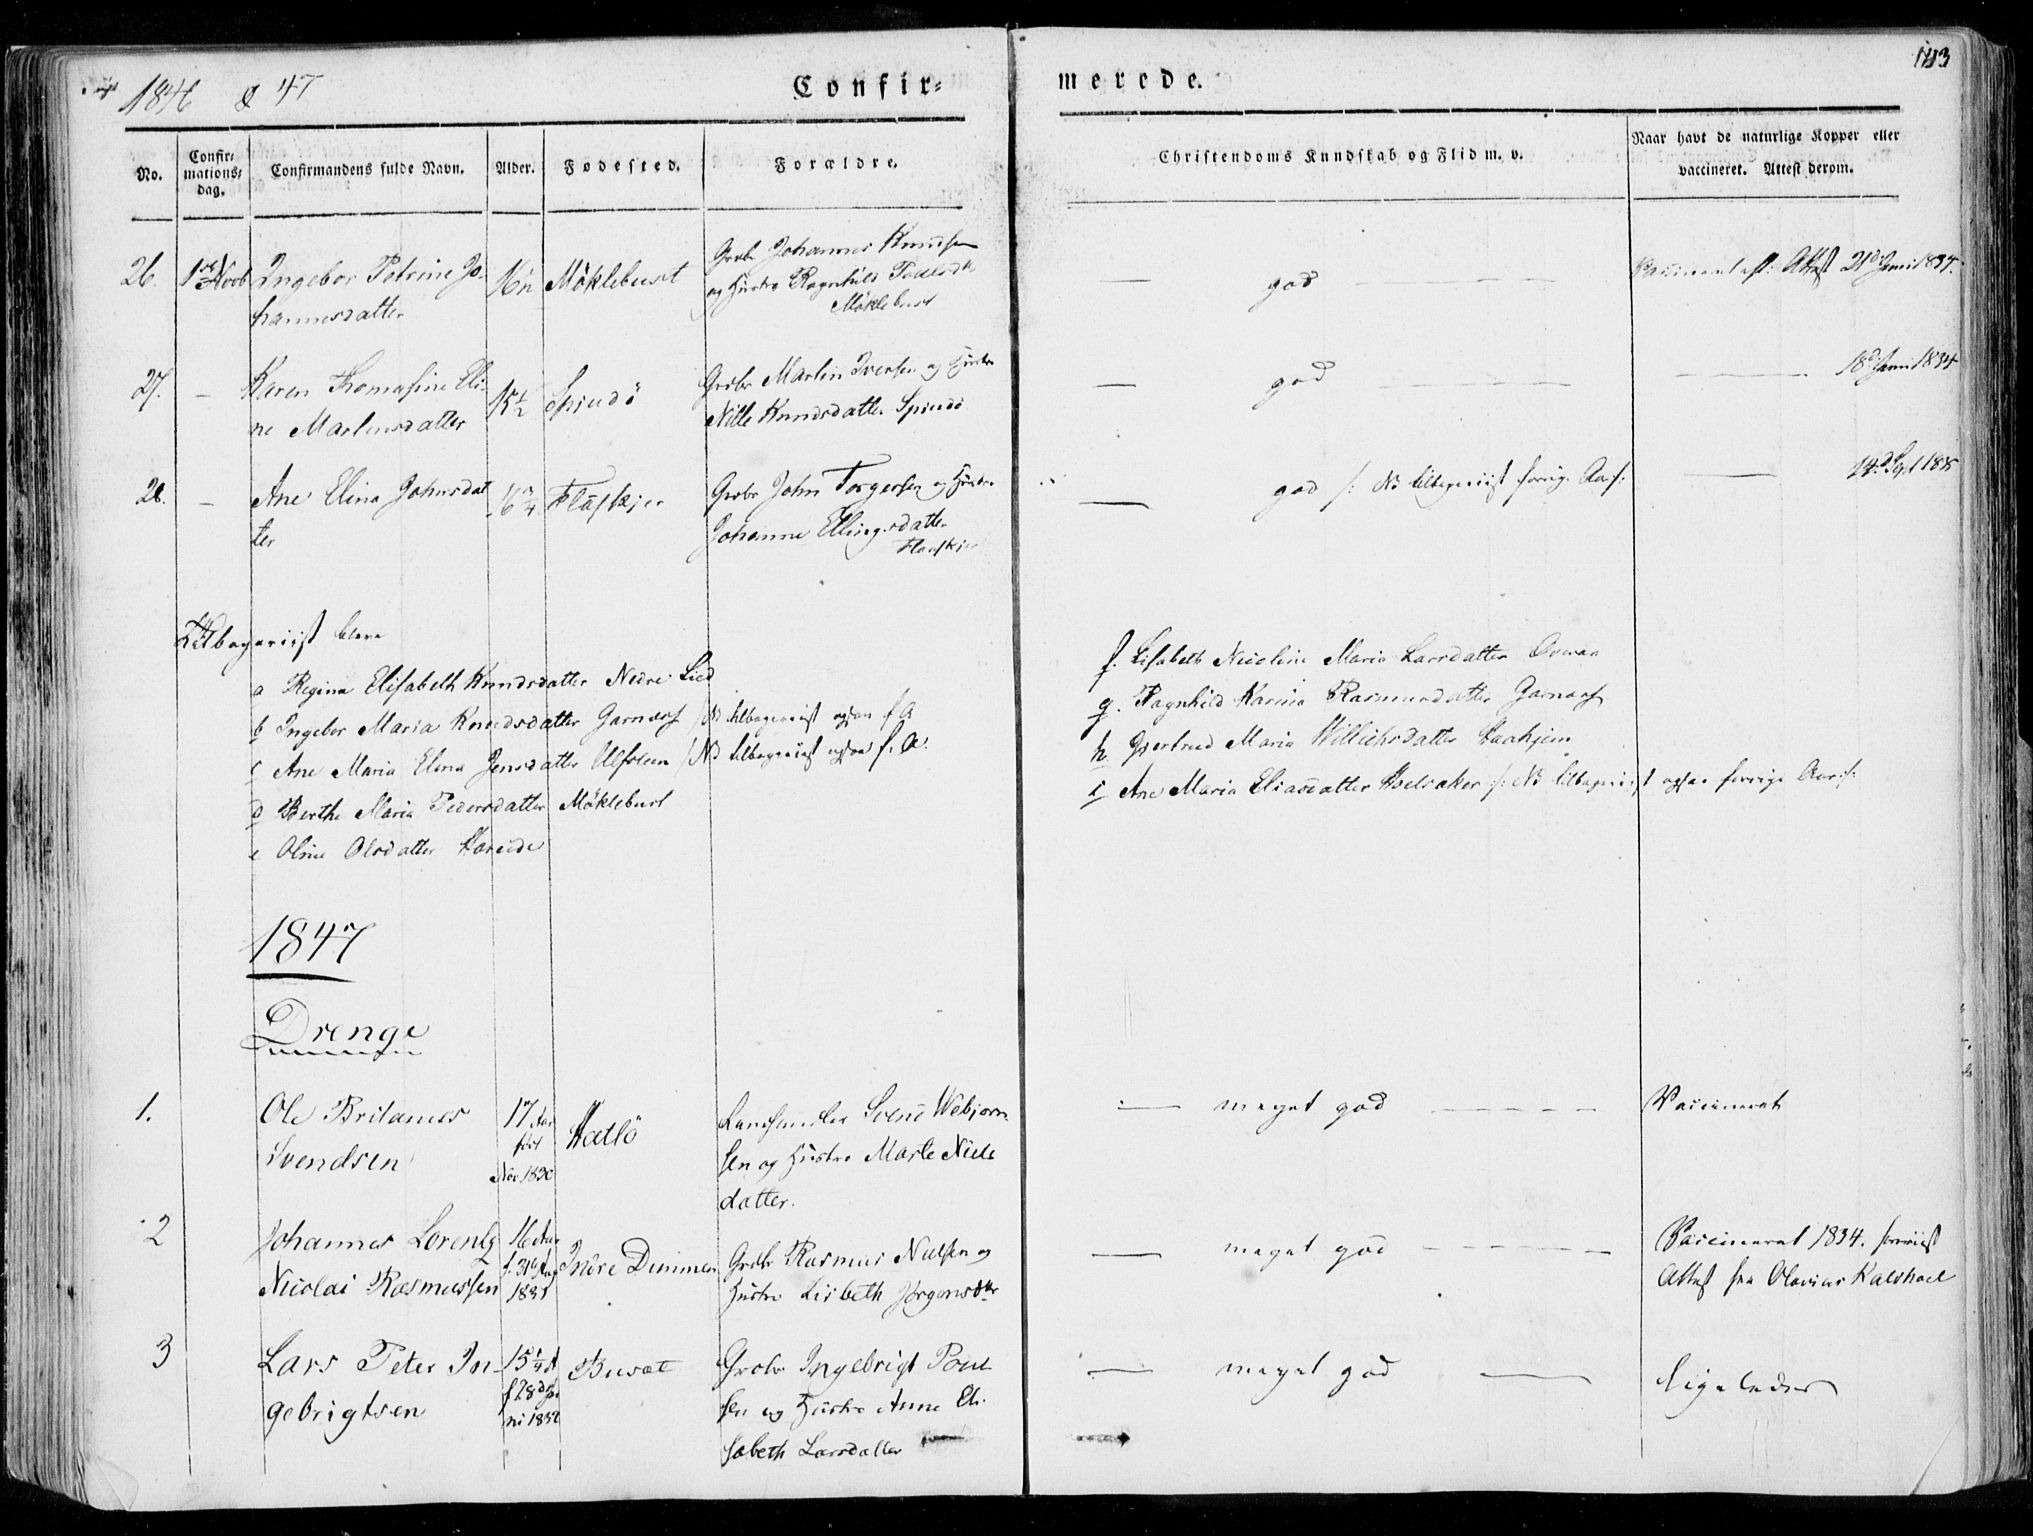 1846 & 47
Confir= merede.
143
No.
Confir=
mations=
dag.
Confirmandens fulde Navn.
Alder.
Fødested.
Forældre.
Christendoms Kundskab og Flid m. v.
Naar havt de naturlige Kopper eller
vaccineret. Attest derom.
26. 1ste Novb Ingebor Petrine Jo-
hannesdatter
16 Møklebust
Grdbr Johannes Knudsen
og Hustro Ragnhild
Møklebust
— god — Attest 21d Juni 1834.
27. – Karen Thomasine Eli-
ne Martinsdatter
15½
Grdbr Martin Iversen og Hustro
Nille Knudsdatter
— god — — 18d Juni 1834
28. – Ane Elina Johnsdat
ter
16¾ Flaaskjer
Grdbr John Torgersen og Hustro
Johanne Ellingsdatter
Flaaskjer
— god /: NB tilbageviist forrige Aar :/ — 14d Sept 1835
Tilbageviist bleve
a Regina Elisabeth Knudsdatter Nedre Lied
b Ingebor Maria Knudsdatter Garnæs /: NB tilbageviist ogsaa f. A
c Ane Maria Elena Jensdatter Ulfsteen /: NB tilbageviist ogsaa f. A.
d Berthe Maria Pedersdatter Møklebust
e Oline Olsdatter Hareide
f. Lisabeth Nicoline Maria Larsdatter Overaa
g. Ragnhild Karina Rasmusdatter Garnæs
h Gjertrud Maria Haahjem
i Ane Maria Eliasdatter Hselsaker /: NB tilbageviist ogsaa forrige Aar :/
1847
Drenge
1. Ole Britanus
Svendsen
17 Aar
født
Nov 1830
Hatlö
Landhandler Svend Webjørn
sen og Hustro Marte Niels
datter.
— meget god — Vaccineret
2 Johannes Lorentz
Nicolai Rasmussen
16 Aar
f. 31te Aug
1831
Indre Dimmen
Grdbr Rasmus Nielsen og
Hustro Lisbeth Jørgensdtr
— meget god — Vaccineret 1834. foreviist
Attest fra Olavius Kalshoel
3 Lars Peter In-
gebrigtsen
15¼ A
f 28d Ju
ni 1832
Busæt
Grdbr Ingebrigt Poul
sen og Hustro Anne Eli
sabeth Larsdatter
— meget god — ligeledes